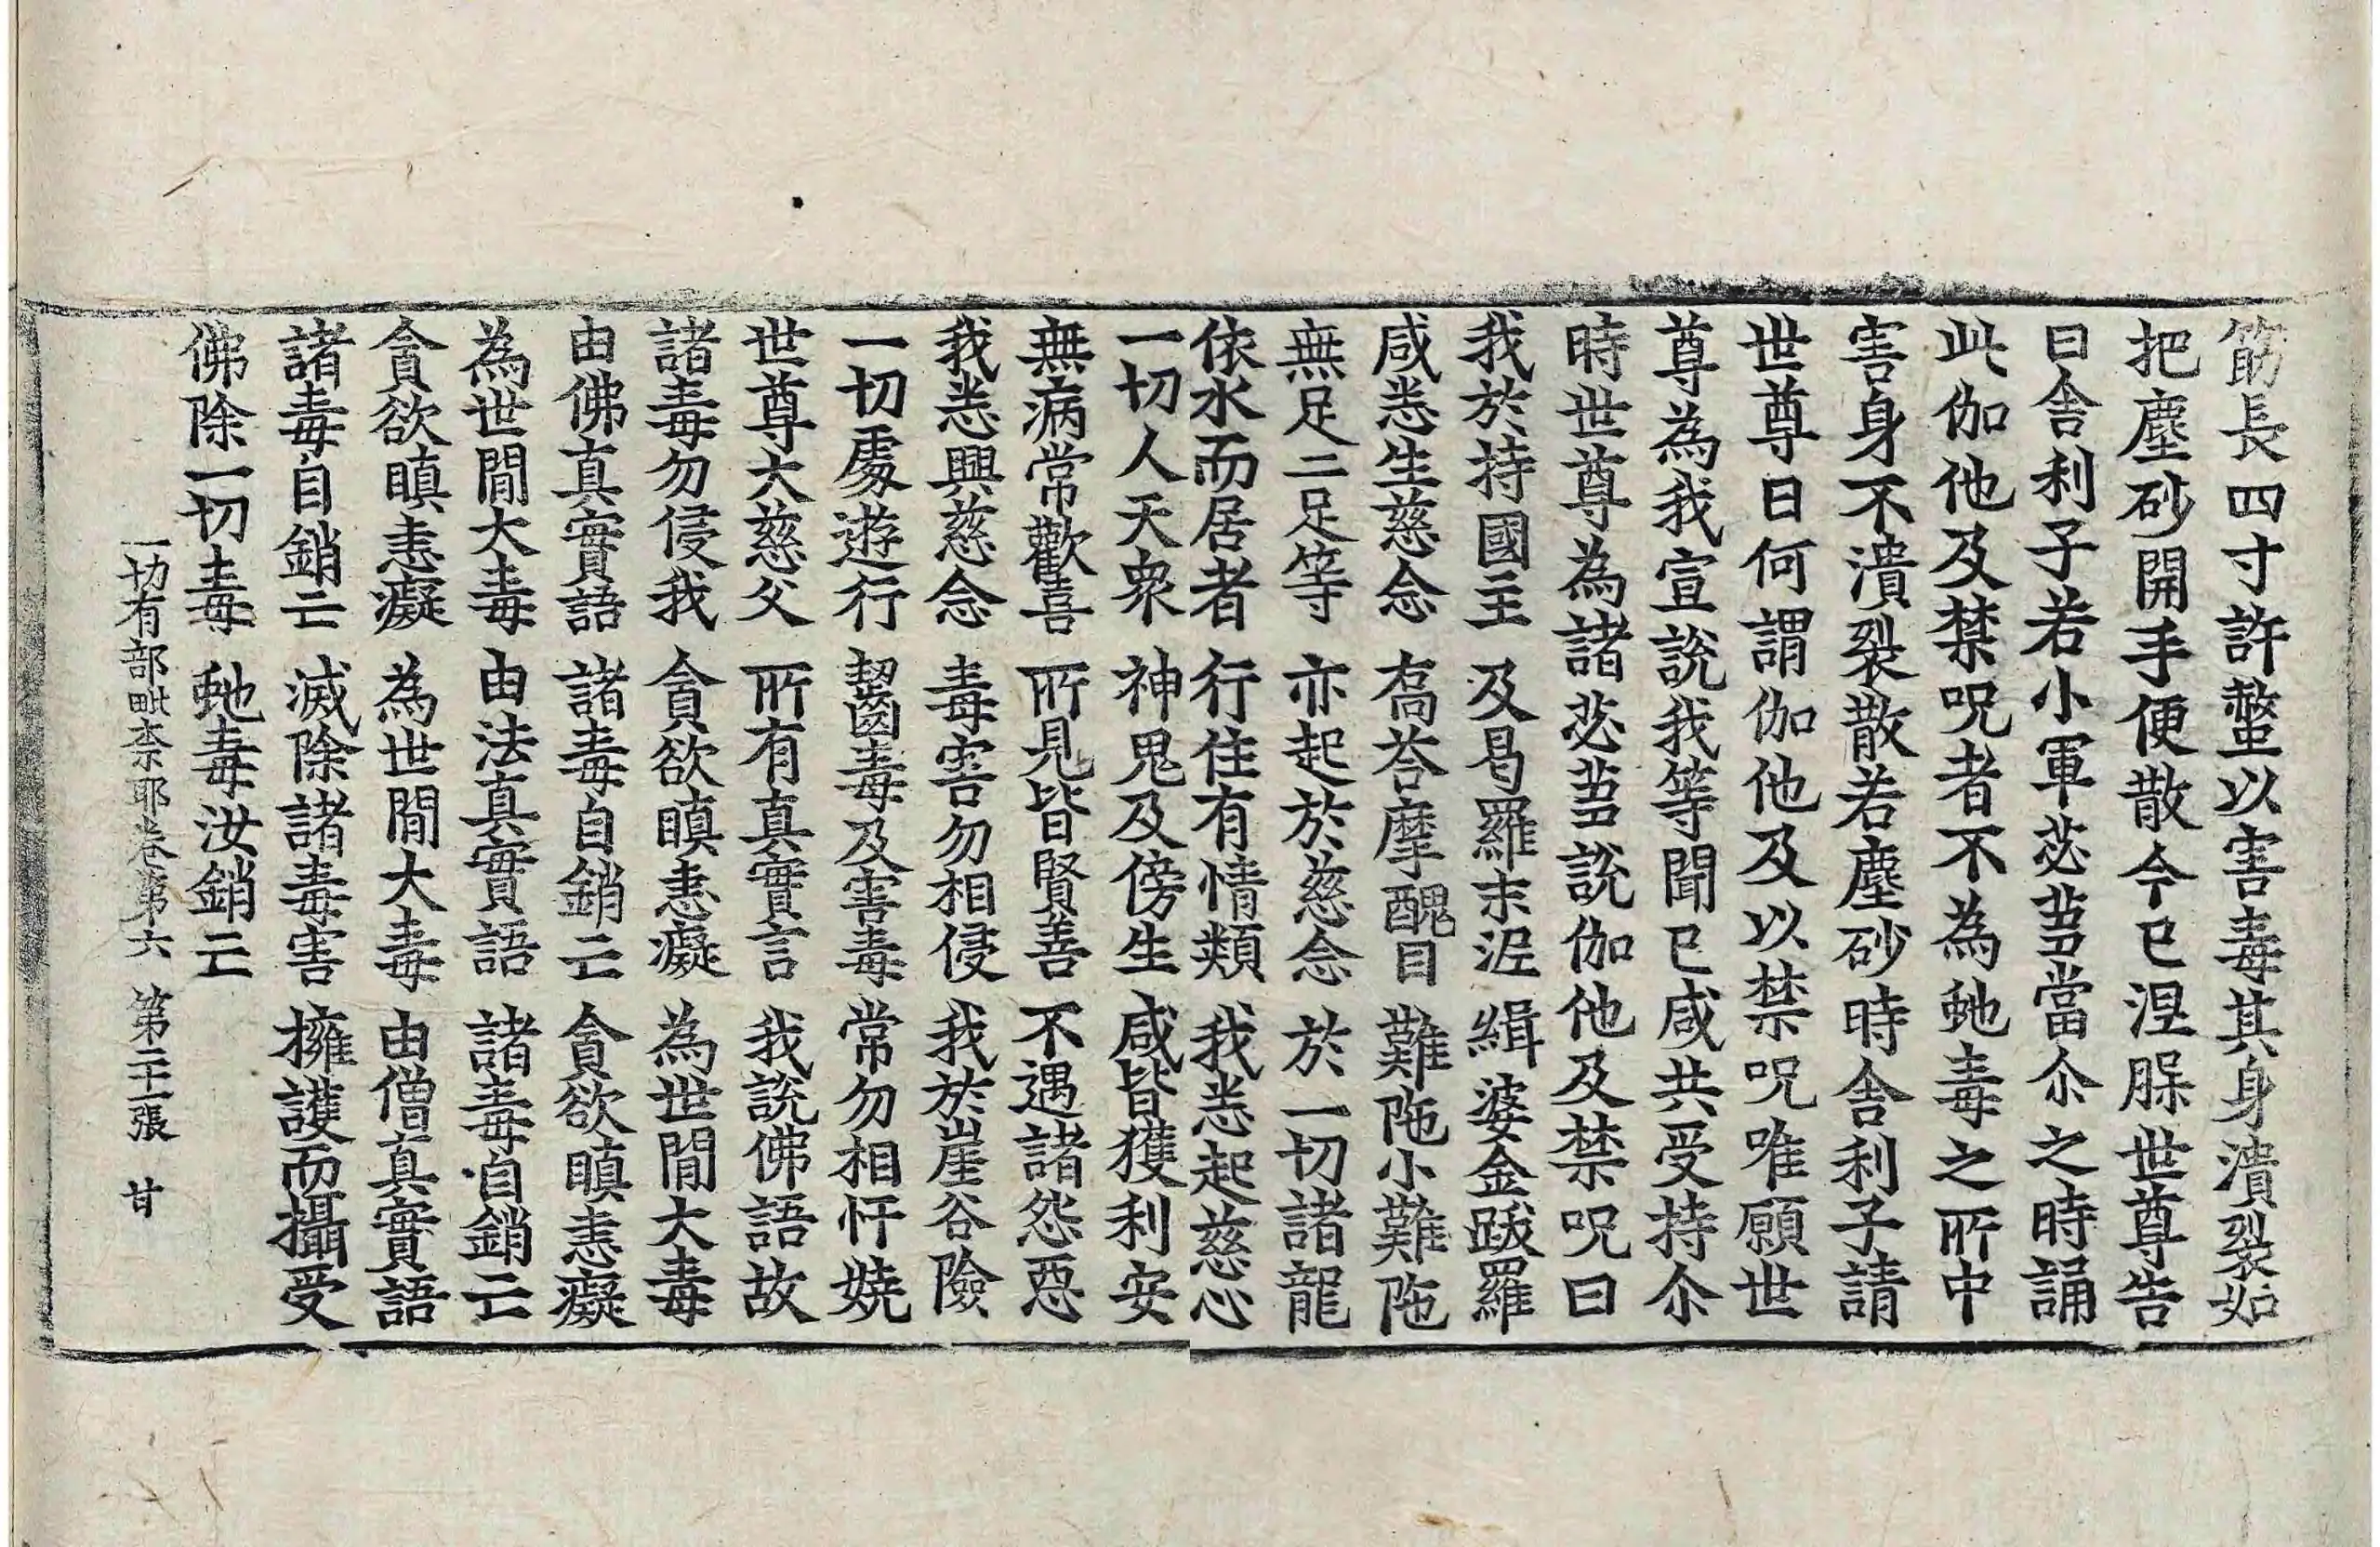 筯長四寸許螫以害毒其身潰裂如
把塵砂開手便散今已涅脲世尊告
曰舍利子若小軍苾芻當尒之時誦
此伽他及禁呪者不為虵毒之所中
害身不潰裂散若塵砂時舍利子請
世尊曰何謂伽他及以禁呪唯願世
尊為我宣說我等聞已咸共受持尒
時世尊為諸苾芻說伽他及禁呪曰
我於持國主 及曷羅末泥 緝婆金跋羅
咸悉生慈念 喬荅摩醜目 難陁小難陁
無足二足等 亦起於慈念 於一切諸龍
依水而居者 行住有情類 我悉起慈心
一切人天衆 神鬼及傍生 咸皆獲利安
無病常歡喜 所見皆賢善 不遇諸怨惡
我悉興慈念 毒害勿相侵 我於崖谷險
一切處遊行 齧毒及害毒 常勿相忓嬈
世尊大慈父 所有真實言 我說佛語故
諸毒勿侵我 貪欲瞋恚癡 為世間大毒
由佛真實語 諸毒自銷亡 貪欲瞋恚癡
為世間大毒 由法真實語 諸毒自銷亡
貪欲瞋恚癡 為世間大毒 由僧真實語
諸毒自銷亡 滅除諸毒害 擁護而攝受
佛除一切毒 虵毒汝銷亡
一切有部毗柰耶卷第六 第二十二張 甘